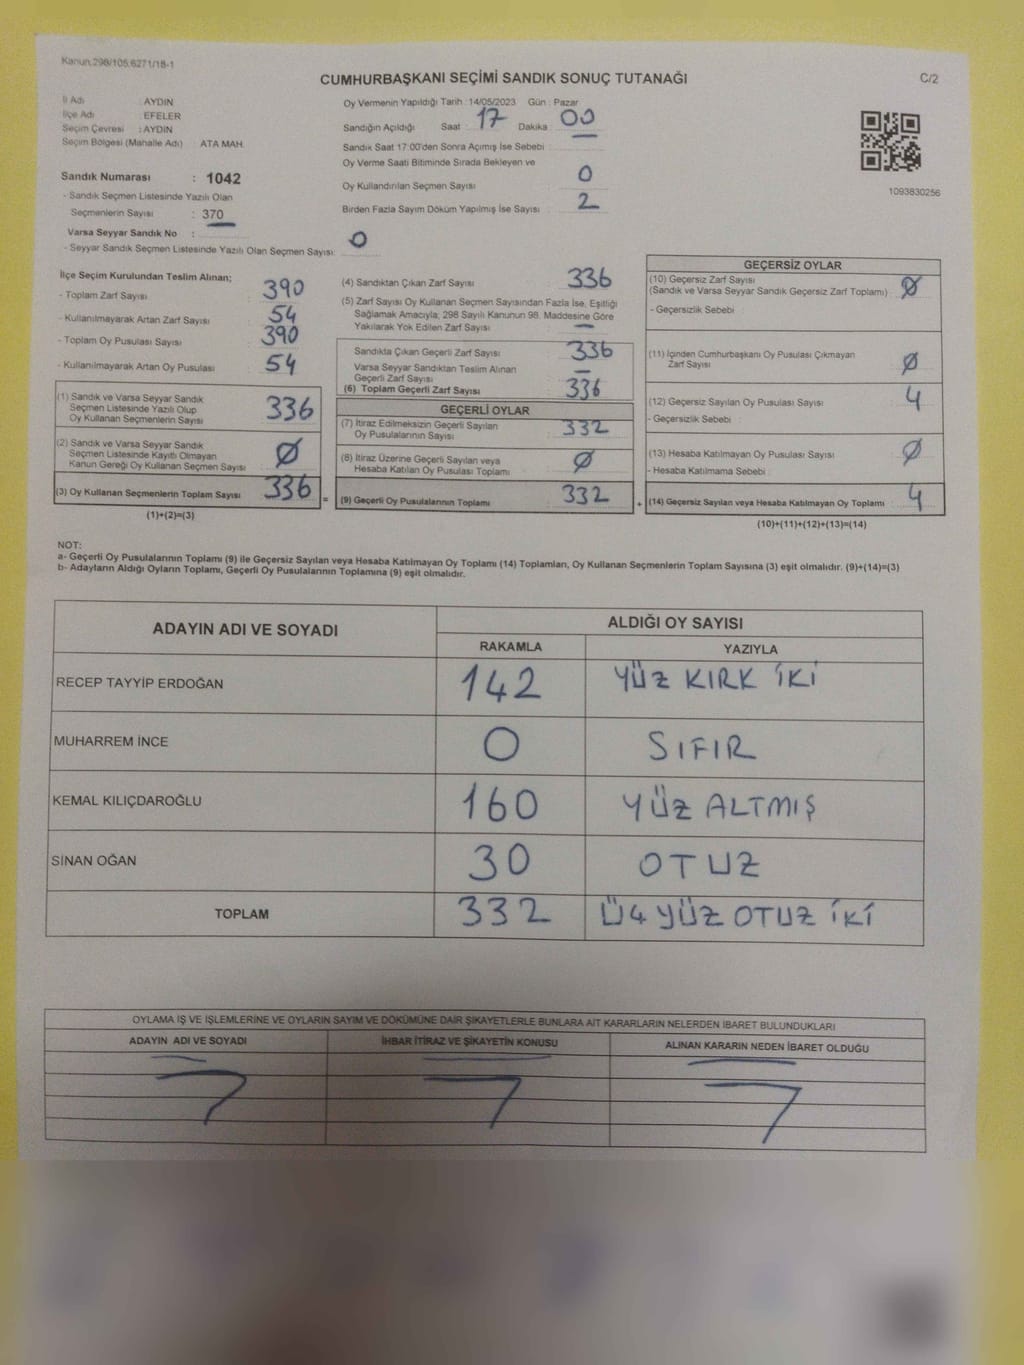 Kanun.298/105,6271/18-1
CUMHURBAŞKANI SEÇİMİ SANDIK SONUÇ TUTANAĞI
C/2
İl Adı : AYDIN
İlçe Adı : EFELER
Seçim Çevresi : AYDIN
Seçim Bölgesi (Mahalle Adı) ATA MAH.
Sandık Numarası : 1042
- Sandık Seçmen Listesinde Yazılı Olan
Seçmenlerin Sayısı : 370
Varsa Seyyar Sandık No :
- Seyyar Sandık Seçmen Listesinde Yazılı Olan Seçmen Sayısı: 0
Oy Vermenin Yapıldığı Tarih : 14/05/2023 Gün : Pazar
Sandığın Açıldığı Saat : 17 Dakika : 00
Sandık Saat 17:00'den Sonra Açımış İse Sebebi :
Oy Verme Saati Bitiminde Sırada Bekleyen ve
Oy Kullandırılan Seçmen Sayısı : 0
Birden Fazla Sayım Döküm Yapılmış İse Sayısı : 2
1093830256
İlçe Seçim Kurulundan Teslim Alınan;
- Toplam Zarf Sayısı : 390
- Kullanılmayarak Artan Zarf Sayısı : 54
- Toplam Oy Pusulası Sayısı : 390
- Kullanılmayarak Artan Oy Pusulası : 54
(1) Sandık ve Varsa Seyyar Sandık
Seçmen Listesinde Yazılı Olup
Oy Kullanan Seçmenlerin Sayısı : 336
(2) Sandık ve Varsa Seyyar Sandık
Seçmen Listesinde Kayıtlı Olmayan
Kanun Gereği Oy Kullanan Seçmen Sayısı : Ø
(3) Oy Kullanan Seçmenlerin Toplam Sayısı : 336
(1)+(2)=(3)
=
(4) Sandıktan Çıkan Zarf Sayısı : 336
(5) Zarf Sayısı Oy Kullanan Seçmen Sayısından Fazla İse, Eşitliği
Sağlamak Amacıyla; 298 Sayılı Kanunun 98. Maddesine Göre
Yakılarak Yok Edilen Zarf Sayısı : —
Sandıkta Çıkan Geçerli Zarf Sayısı : 336
Varsa Seyyar Sandıktan Teslim Alınan
Geçerli Zarf Sayısı : —
(6) Toplam Geçerli Zarf Sayısı : 336
GEÇERLİ OYLAR
(7) İtiraz Edilmeksizin Geçerli Sayılan
Oy Pusulalarının Sayısı : 332
(8) İtiraz Üzerine Geçerli Sayılan veya
Hesaba Katılan Oy Pusulası Toplamı : Ø
(9) Geçerli Oy Pusulalarının Toplamı : 332
+
GEÇERSİZ OYLAR
(10) Geçersiz Zarf Sayısı
(Sandık ve Varsa Seyyar Sandık Geçersiz Zarf Toplamı) : Ø
- Geçersizlik Sebebi :
(11) İçinden Cumhurbaşkanı Oy Pusulası Çıkmayan
Zarf Sayısı : Ø
(12) Geçersiz Sayılan Oy Pusulası Sayısı : 4
- Geçersizlik Sebebi :
(13) Hesaba Katılmayan Oy Pusulası Sayısı : Ø
- Hesaba Katılmama Sebebi :
(14) Geçersiz Sayılan veya Hesaba Katılmayan Oy Toplamı : 4
(10)+(11)+(12)+(13)=(14)
NOT:
a- Geçerli Oy Pusulalarının Toplamı (9) ile Geçersiz Sayılan veya Hesaba Katılmayan Oy Toplamı (14) Toplamları, Oy Kullanan Seçmenlerin Toplam Sayısına (3) eşit olmalıdır. (9)+(14)=(3)
b- Adayların Aldığı Oyların Toplamı, Geçerli Oy Pusulalarının Toplamına (9) eşit olmalıdır.
ADAYIN ADI VE SOYADI ALDIĞI OY SAYISI
RAKAMLA YAZIYLA
RECEP TAYYİP ERDOĞAN 142 YÜZ KIRK İKİ
MUHARREM İNCE 0 SIFIR
KEMAL KILIÇDAROĞLU 160 YÜZ ALTMIŞ
SİNAN OĞAN 30 OTUZ
TOPLAM 332 ÜÇ YÜZ OTUZ İKİ
OYLAMA İŞ VE İŞLEMLERİNE VE OYLARIN SAYIM VE DÖKÜMÜNE DAİR ŞİKAYETLERLE BUNLARA AİT KARARLARIN NELERDEN İBARET BULUNDUKLARI
ADAYIN ADI VE SOYADI İHBAR İTİRAZ VE ŞİKAYETİN KONUSU ALINAN KARARIN NEDEN İBARET OLDUĞU